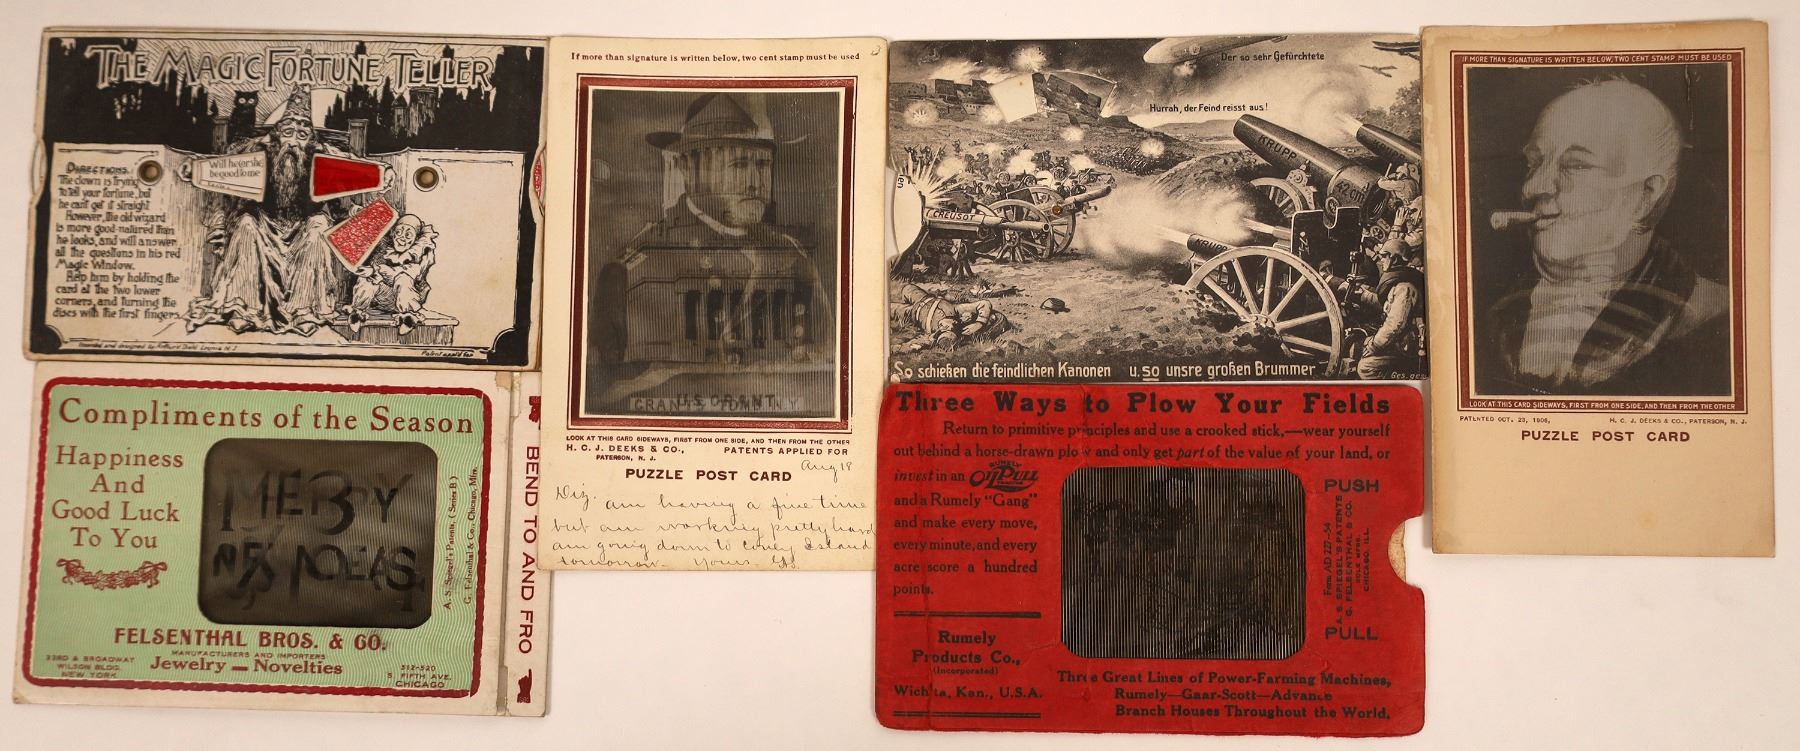 THE MAGIC FORTUNE TELLER
DIRECTIONS.
The clown is trying
to tell your fortune, but
he can't get it straight
However, the old wizard
is more good-natured than
he looks, and will answer
all the questions in his red
Magic Window.
Help him by holding the
card at the two lower
corners, and turning the
discs with the first fingers.
Will he or she
be good to me
Patent appl'd for
If more than signature is written below, two cent stamp must be used
U.S. GRANT
GRANT'S TOMB N.Y.
LOOK AT THIS CARD SIDEWAYS, FIRST FROM ONE SIDE, AND THEN FROM THE OTHER
H. C. J. DEEKS & CO., PATENTS APPLIED FOR
PATERSON, N. J.
PUZZLE POST CARD
Aug 18
am having a fine time
but am working pretty hard
am going down to Coney Island
tomorrow. Yours.
Der so sehr Gefürchtete
Hurrah, der Feind reisst aus!
KRUPP
42 cm
CREUSOT
KRUPP
So schießen die feindlichen Kanonen u. so unsre großen Brummer
Ges. gesch.
IF MORE THAN SIGNATURE IS WRITTEN BELOW, TWO CENT STAMP MUST BE USED
LOOK AT THIS CARD SIDEWAYS, FIRST FROM ONE SIDE, AND THEN FROM THE OTHER
PATENTED OCT. 23, 1906, H. C. J. DEEKS & CO., PATERSON, N. J.
PUZZLE POST CARD
Compliments of the Season
Happiness
And
Good Luck
To You
MERRY
A. S. Spiegel's Patents, (Series B)
G. Felsenthal & Co., Chicago, Mfrs.
FELSENTHAL BROS. & CO.
MANUFACTURERS AND IMPORTERS
Jewelry — Novelties
23RD & BROADWAY
WILSON BLDG.
NEW YORK
312-520
S. FIFTH AVE.
CHICAGO
BEND TO AND FRO
Three Ways to Plow Your Fields
Return to primitive principles and use a crooked stick,—wear yourself
out behind a horse-drawn plow and only get part of the value of your land, or
invest in an RUMELY OilPull TRACTOR
and a Rumely "Gang"
and make every move,
every minute, and every
acre score a hundred
points.
Rumely
Products Co.,
(Incorporated)
Wichita, Kan., U.S.A.
PUSH
Form AD 227-54
A. S. SPIEGEL'S PATENTS
G. FELSENTHAL & CO.
SOLE MFRS.
CHICAGO, ILL.
PULL
Three Great Lines of Power-Farming Machines,
Rumely—Gaar-Scott—Advance
Branch Houses Throughout the World.